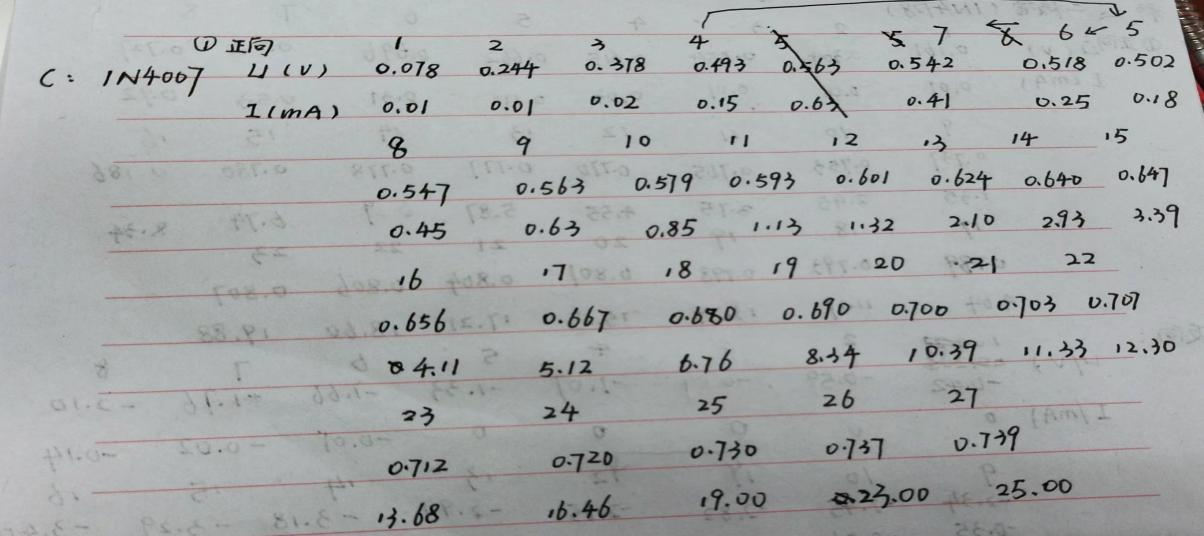 ① 正向 1 2 3 4 5 5 7 6 6 ← 5
C: 1N4007 U(V) 0.078 0.244 0.378 0.493 0.563 0.542 0.518 0.502
I(mA) 0.01 0.01 0.02 0.15 0.63 0.41 0.25 0.18
8 9 10 11 12 13 14 15
0.547 0.563 0.579 0.593 0.601 0.624 0.640 0.647
0.45 0.63 0.85 1.13 1.32 2.10 2.93 3.39
16 17 18 19 20 21 22
0.656 0.667 0.680 0.690 0.700 0.703 0.707
4.11 5.12 6.76 8.34 10.39 11.33 12.30
23 24 25 26 27
0.712 0.720 0.730 0.737 0.739
13.68 16.46 19.00 23.00 25.00